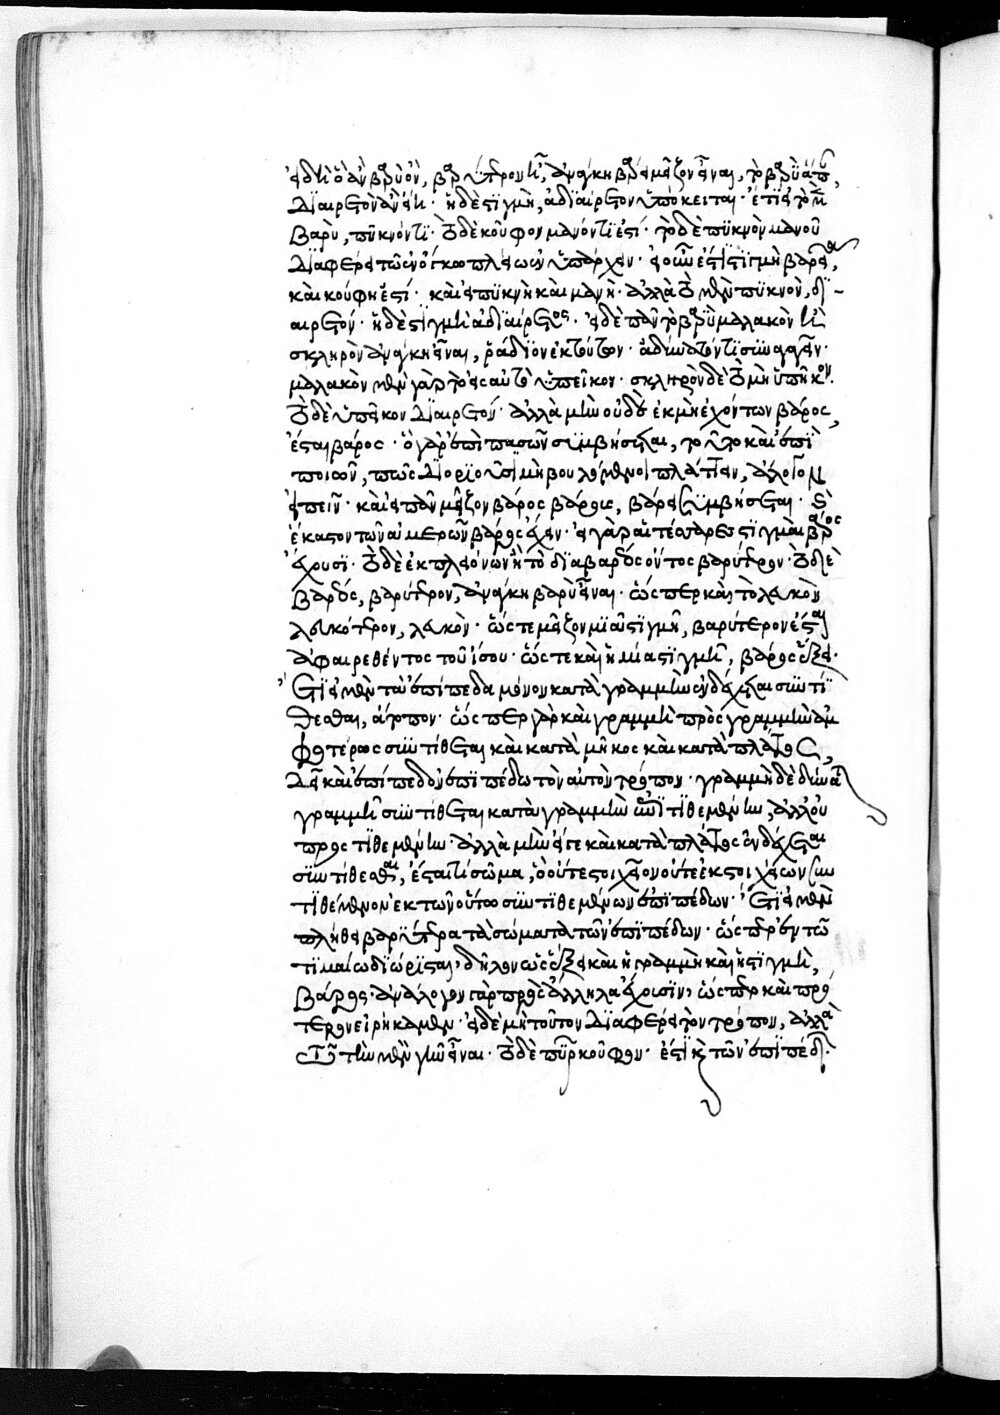 εἰ δέ τι ὃ ἂν βαρὺ ὂν, βαρύτερον ᾖ, ἀνάγκη βάρει μεῖζον εἶναι, τὸ βαρὺ ἅπαν,
διαιρετὸν ἂν εἴη· ἡ δὲ στιγμὴ, ἀδιαίρετον ὑπόκειται· ἔτι εἰ τὸ μὲν
βαρὺ, πυκνόν τι· τὸ δὲ κοῦφον μανόν τι ἐστί· τὸ δὲ πυκνὸν μανοῦ
διαφέρει τῷ ἐν ὄγκῳ πλείω ἐνυπάρχειν· εἰ οὖν ἐστὶ στιγμὴ βαρεῖα,
καὶ κούφη ἐστί· καὶ εἰ πυκνὴ καὶ μανή· ἀλλὰ τὸ μὲν πυκνὸν, δι-
αιρετόν· ἡ δὲ στιγμὴ ἀδιαίρετος· εἰ δὲ πᾶν τὸ βαρὺ μαλακὸν ἢ
σκληρὸν ἀνάγκη εἶναι, ῥάδιον ἐκ τούτων· ἀδύνατόν τι συναγαγεῖν·
μαλακὸν μὲν γὰρ τὸ εἰς αὐτὸ ὑπεῖκον· σκληρὸν δὲ τὸ μὴ ὑπεῖκον·
τὸ δὲ ὑπεῖκον διαιρετόν· ἀλλὰ μὴν οὐδὲ ἐκ μὴ ἐχόντων βάρος,
ἔσται βάρος· ὃ γὰρ ἐπὶ πασῶν συμβήσεται, τοῦτο καὶ ἐπὶ
ποιωῶν, πῶς διοριοῦσι μὴ βουλόμενοι πλάττειν,
εἰπεῖν· καὶ εἰ πᾶν μεῖζον βάρος βάρους, βάρει συμβήσεται·
ἕκαστον τῶν ἀμερῶν βάρος ἔχειν· εἰ γὰρ αἱ τέσσαρες στιγμαὶ βάρος
ἔχουσι· τὸ δὲ ἐκ πλειόνων ἢ τοδὶ βαρέος ὄντος βαρύτερον· τὸ δὲ
βαρέος, βαρύτερον, ἀνάγκη βαρὺ εἶναι· ὥσπερ καὶ τὸ λευκοῦ
λευκότερον, λευκόν· ὥστε μεῖζον μιᾷ στιγμῇ, βαρύτερον ἔσται
ἀφαιρεθέντος τοῦ ἴσου· ὥστε καὶ ἡ μία στιγμὴ, βάρος ἕξει·
ἔτι εἰ μὲν τὰ ἐπίπεδα μόνον κατὰ γραμμὴν ἐνδέχεται συντί
θεσθαι, ἄτοπον· ὥσπερ γὰρ καὶ γραμμὴ πρὸς γραμμὴν ἀμ
φοτέρως συντίθεται καὶ κατὰ μῆκος καὶ κατὰ πλάτος,
δεῖ καὶ ἐπίπεδον ἐπιπέδω τὸν αὐτὸν τρόπον· γραμμὴ δὲ δύναται
γραμμῇ συντίθεσθαι κατὰ γραμμὴν ἐπιτιθεμένην, ἀλλ' οὐ
προστιθεμένην· ἀλλὰ μὴν εἴγε καὶ κατὰ πλάτος ἐνδέχεται
συντίθεσθαι, ἔσται τὶ σῶμα, ὃ οὔτε στοιχεῖον οὔτε ἐκ στοιχείων συν
τιθέμενον ἐκ τῶν οὕτω συντιθεμένων ἐπιπέδων· ἔτι εἰ μὲν
πλήθει βαρύτερα τὰ σώματα τῶν ἐπιπέδων· ὥσπερ ἐν τῶ
τιμαίω διώρισται, δῆλον ὡς ἕξει καὶ ἡ γραμμὴ καὶ ἡ στιγμὴ,
βάρος· ἀνάλογον γὰρ πρὸς ἄλληλα ἔχουσιν, ὥσπερ καὶ πρό
τερον εἰρήκαμεν· εἰ δὲ μὴ τοῦτον διαφέρει τὸν τρόπον, ἀλλὰ
τῶ τὴν μὲν γῆν εἶναι· τὸ δὲ πῦρ κοῦφον· ἔσται καὶ τῶν ἐπιπέδων·